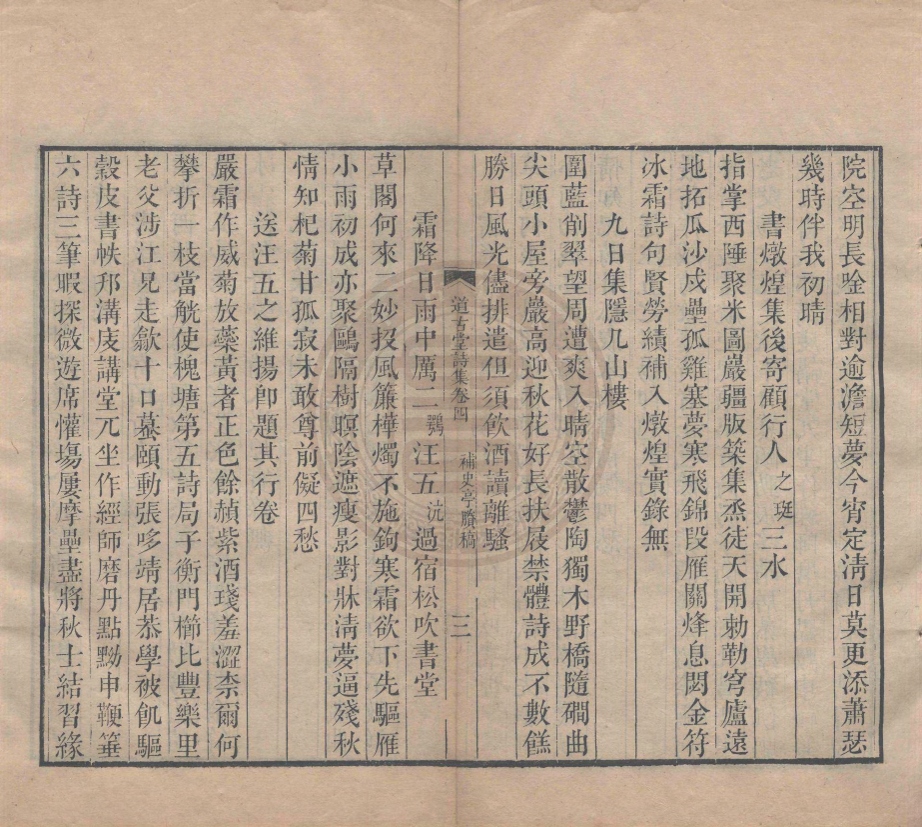 院空明長唫相對逾澹短夢今宵定淸日莫更添蕭瑟
幾時伴我初晴
書燉煌集後寄顧行人之珽三水
指掌西陲聚米圖巖疆版築集烝徒天開勅勒穹廬遠
地拓瓜沙戍壘孤雞塞夢寒飛錦段雁關烽息閟金符
冰霜詩句賢勞績補入燉煌實錄無
九日集隱几山樓
圍藍削翠望周遭爽入晴空散鬱陶獨木野橋隨磵曲
尖頭小屋旁巖高迎秋花好長扶屐禁體詩成不數餻
勝日風光儘排遣但須飮酒讀離騷
霜降日雨中厲二鶚汪五沆過宿松吹書堂
草閣何來二妙投風簾樺燭不施鉤寒霜欲下先驅雁
小雨初成亦聚鷗隔樹暝陰遮瘦影對牀淸夢逼殘秋
情知杞菊甘孤寂未敢尊前儗四愁
送汪五之維揚卽題其行卷
嚴霜作威菊放蘂黃者正色餘赬紫酒琖羞澀柰爾何
攀折一枝當觥使槐塘第五詩局子衡門櫛比豐樂里
老父涉江見走歙十口綦頤動張哆靖居恭學被飢驅
穀皮書帙邦溝庋講堂兀坐作經師磨丹點黝申鞭箠
六詩三筆暇探微遊席懽場屢摩壘盡將秋士結習緣
道古堂詩集卷四
補史亭賸稿
三